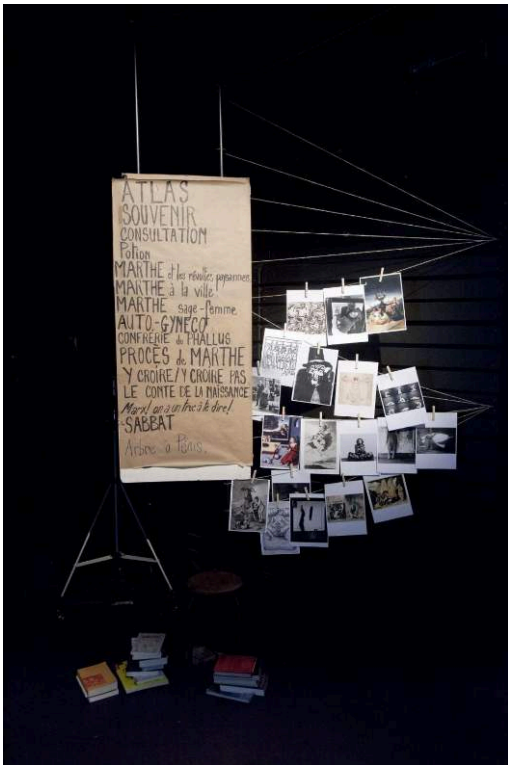 ATLAS
SOUVENIR
CONSULTATION
Potion
MARTHE et les révoltes paysannes
MARTHE à la ville
MARTHE sage-femme
AUTO-GYNECO
CONFRÉRIE du PHALLUS
PROCÈS de MARTHE
Y CROIRE/Y CROIRE PAS
LE CONTE DE LA NAISSANCE
Marx! on a un truc à te dire!
-SABBAT
Arbre à Pénis